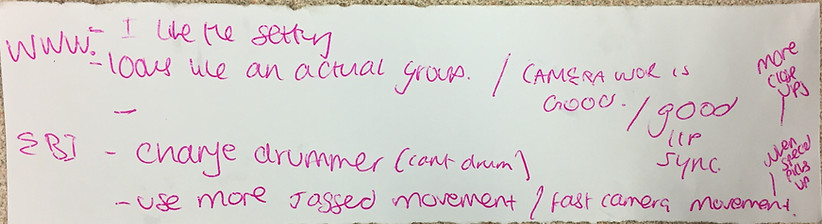 WWW: - I like the setting
- looks like an actual group. / CAMERA WORK IS GOOD. / good lip sync.
-
EBI - change drummer (cant drum)
- use more jagged movement / fast camera movement
more close ups / when speed picks up